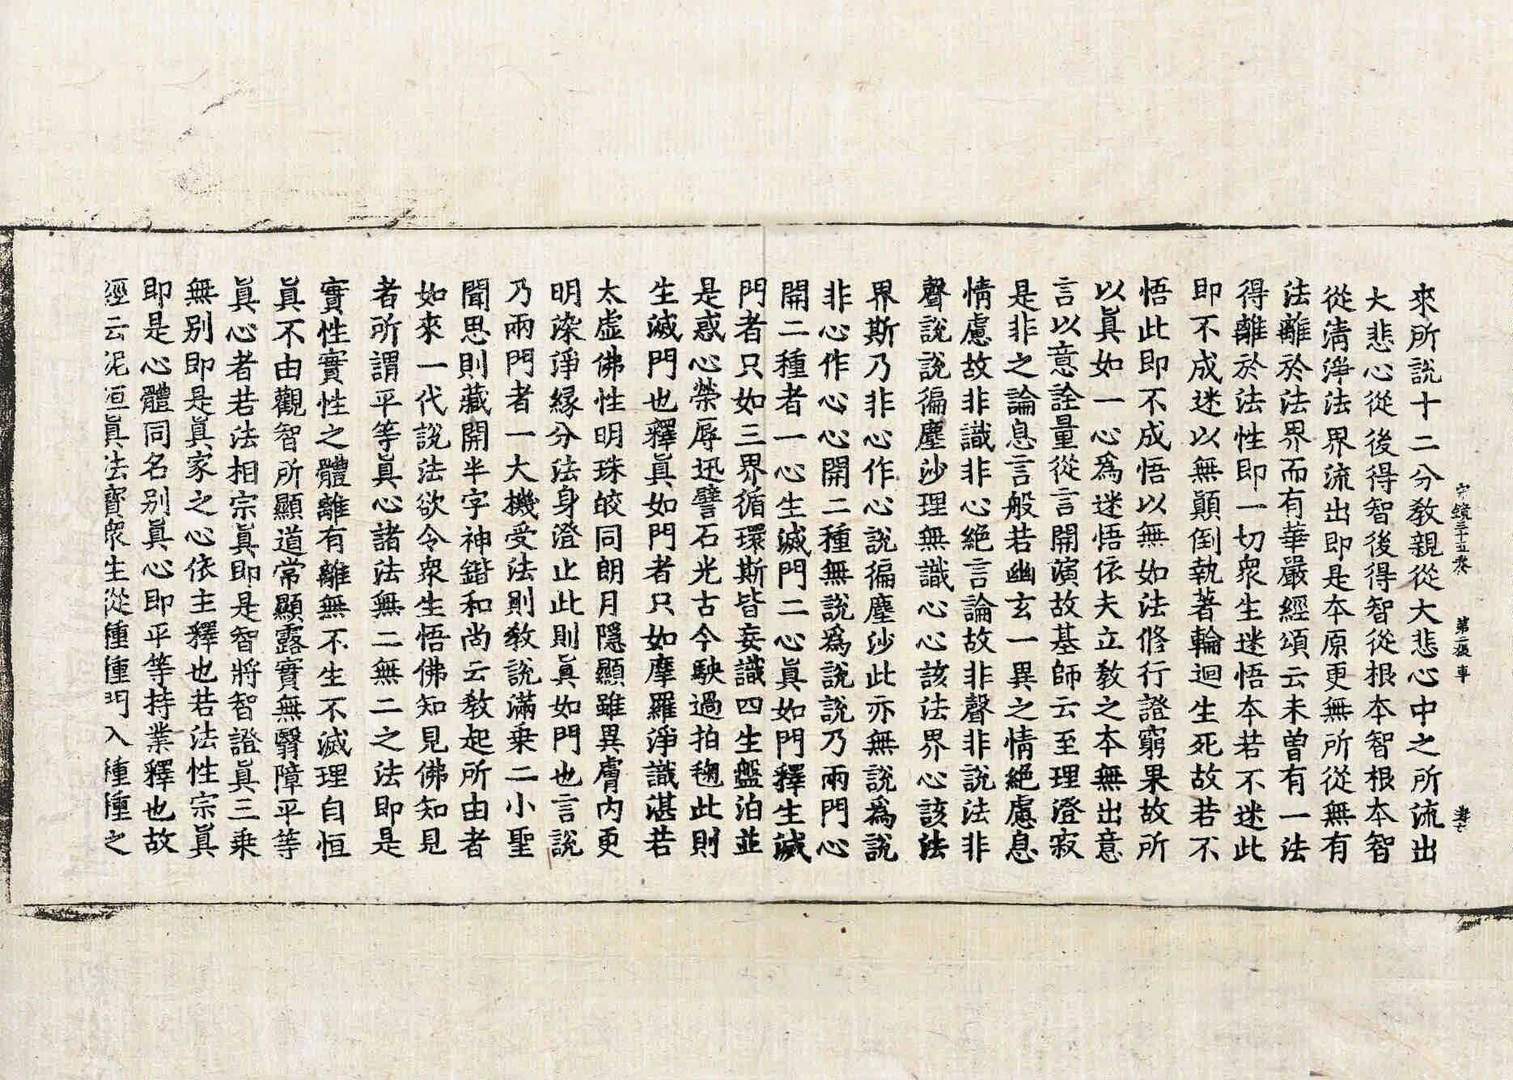 宗鏡三十五卷 第二張 車
來所說十二分教親從大悲心中之所流出
大悲心從後得智後得智從根本智根本智
從清淨法界流出即是本原更無所從無有
法離於法界而有華嚴經頌云未曾有一法
得離於法性即一切衆生迷悟本若不迷此
即不成迷以無顚倒執著輪迴生死故若不
悟此即不成悟以無如法修行證窮果故所
以眞如一心爲迷悟依夫立教之本無出意
言以意詮量從言開演故基師云至理澄寂
是非之論息言般若幽玄一異之情絕慮息
情慮故非識非心絕言論故非聲非說法非
聲說說徧塵沙理無識心心該法界心該法
界斯乃非心作心說徧塵沙此亦無說爲說
非心作心心開二種無說爲說說乃兩門心
開二種者一心生滅門二心眞如門釋生滅
門者只如三界循環斯皆妄識四生盤泊並
是惑心榮辱迅譬石光古今駛過拍毱此則
生滅門也釋眞如門者只如摩羅淨識湛若
太虛佛性明珠皎同朗月隱顯雖異膚內更
明染淨緣分法身澄止此則眞如門也言說
乃兩門者一大機受法則教說滿乘二小聖
聞思則藏開半字神鍇和尚云教起所由者
如來一代說法欲令衆生悟佛知見佛知見
者所謂平等眞心諸法無二無二之法即是
實性實性之體離有離無不生不滅理自恒
眞不由觀智所顯道常顯露實無翳障平等
眞心者若法相宗眞即是智將智證眞三乘
無別即是眞家之心依主釋也若法性宗眞
即是心體同名別眞心即平等持業釋也故
經云泥洹眞法寶衆生從種種門入種種之